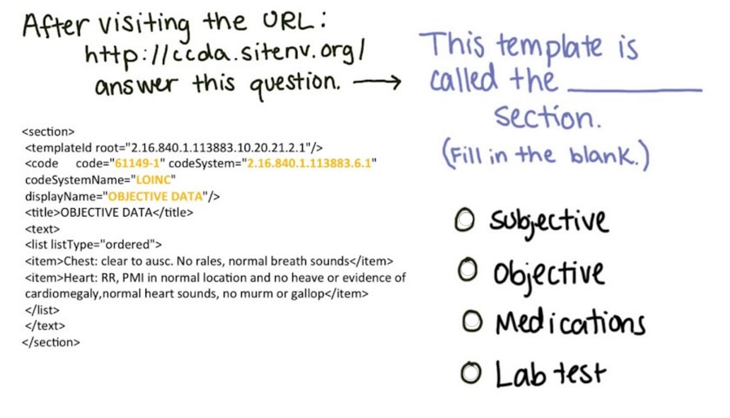 After visiting the URL:
http://ccda.sitenv.org/
answer this question. →
This template is
called the ________
section.
(Fill in the blank.)
<section>
<templateId root="2.16.840.1.113883.10.20.21.2.1"/>
<code code="61149-1" codeSystem="2.16.840.1.113883.6.1"
codeSystemName="LOINC"
displayName="OBJECTIVE DATA"/>
<title>OBJECTIVE DATA</title>
<text>
<list listType="ordered">
<item>Chest: clear to ausc. No rales, normal breath sounds</item>
<item>Heart: RR, PMI in normal location and no heave or evidence of
cardiomegaly,normal heart sounds, no murm or gallop</item>
</list>